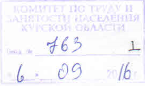 КОМИТЕТ ПО ТРУДУ И
ЗАНЯТОСТИ НАСЕЛЕНИЯ
КУРСКОЙ ОБЛАСТИ
№ 763 1
6. 09 2016 г